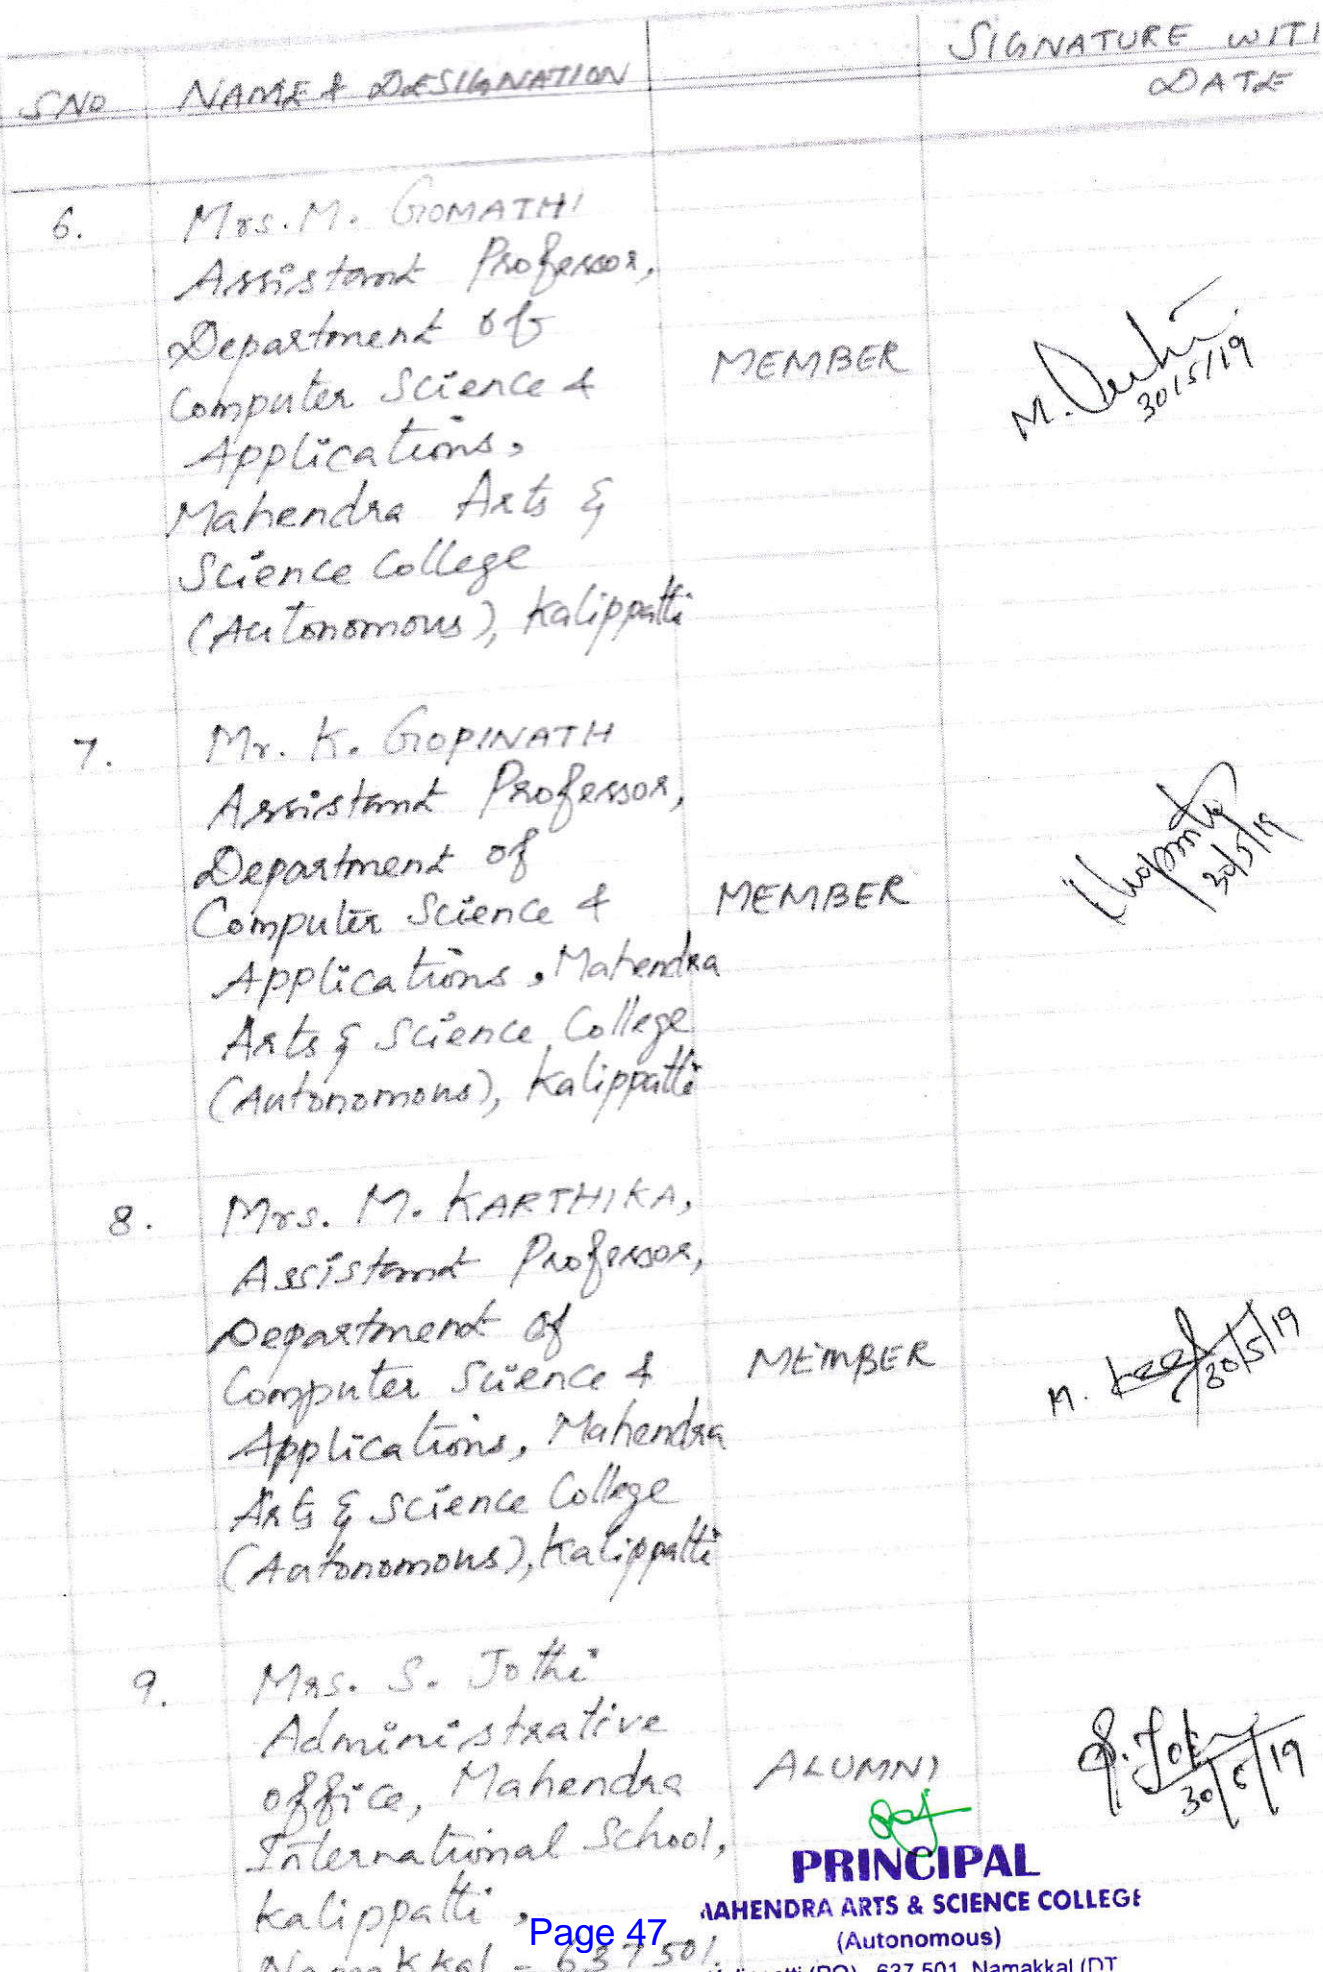 SIGNATURE WITH
SNO NAME & DESIGNATION DATE
6. Mrs. M. GOMATHI
Assistant Professor,
Department of
Computer Science &
Applications,
Mahendra Arts &
Science College
(Autonomous), Kalippatti
MEMBER
M.
30/5/19
7. Mr. K. GOPINATH
Assistant Professor,
Department of
Computer Science &
Applications, Mahendra
Arts & Science College
(Autonomous), Kalippatti
MEMBER
30/5/19
8. Mrs. M. KARTHIKA,
Assistant Professor,
Department of
Computer Science &
Applications, Mahendra
Arts & Science College
(Autonomous), Kalippatti
MEMBER
M.
30/5/19
9. Mrs. S. Jothi
Administrative
office, Mahendra
International School,
Kalippatti,
Namakkal - 637501.
ALUMNI
S. Jothi
30/5/19
PRINCIPAL
MAHENDRA ARTS & SCIENCE COLLEGE
(Autonomous)
(PO) - 637 501, Namakkal (DT
Page 47